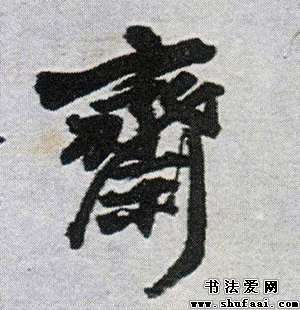 齋
书法爱网
www.shufaai.com